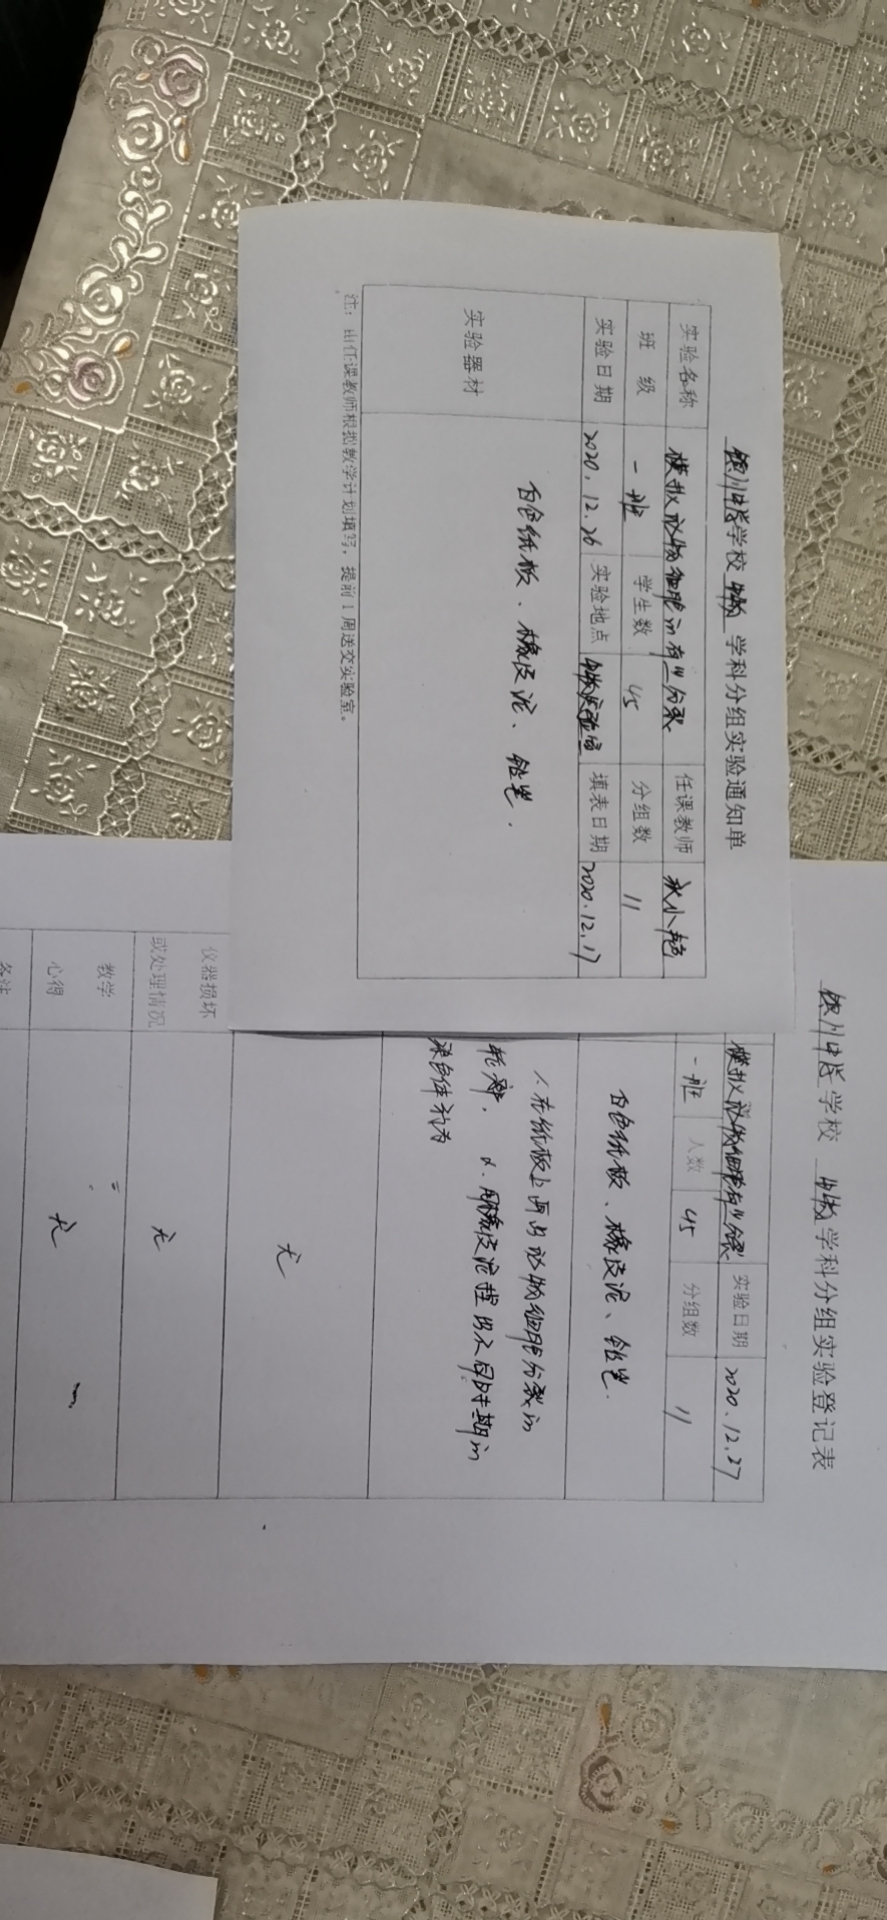 银川中学学校 生物 学科分组实验通知单
实验名称 模拟动物细胞的有丝分裂 任课教师
班 级 一班 学生数 45 分组数 11
实验日期 2020.12.26 实验地点 生物实验室 填表日期 2020.12.17
实验器材 白色纸板、橡皮泥、铅笔.
注:由任课教师根据教学计划填写,提前1周送交实验室。
银川中学学校 生物学科分组实验登记表
模拟动物细胞有丝分裂 实验日期 2020.12.27
一班 人数 45 分组数 11
白色纸板、橡皮泥、铅笔.
1.在纸板上画出动物细胞分裂的
轮廓. 2.用橡皮泥捏出不同时期的
染色体行为
无
仪器损坏
或处理情况 无
教学
心得 无
备注